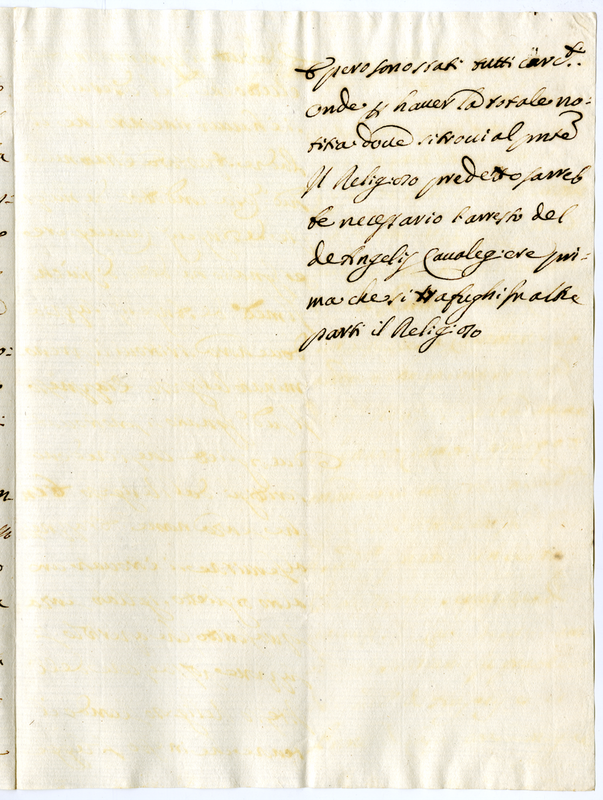 E pero sono stati tutti carc.ti
onde p haver la totale no:
titia dove si trovi al pnte
Il Religioso predetto sareb
be necessario l'arresto del
de Angelis Cavalegiere pri:
ma che si trafughi in altre
parti il Religioso